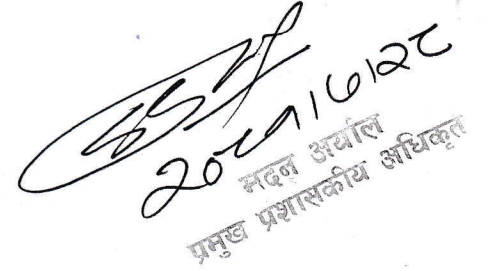 २०८१।७।२८
मदन अर्याल
प्रमुख प्रशासकीय अधिकृत